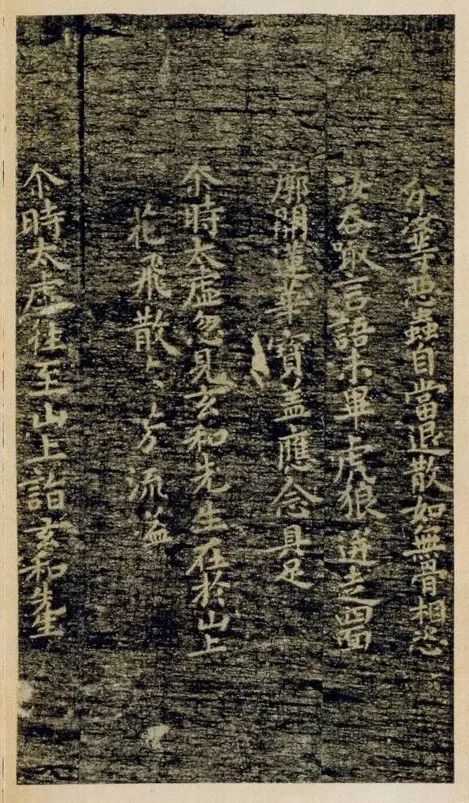 分著惡蟲自當退散如無骨相恣
汝吞噉言語未畢虎狼迸走四面
廓開蓮華寶盖應念具足
尒時太虛忽見玄和先生在於山上
花飛散六方流溢
尒時太虛往至山上詣玄和先生